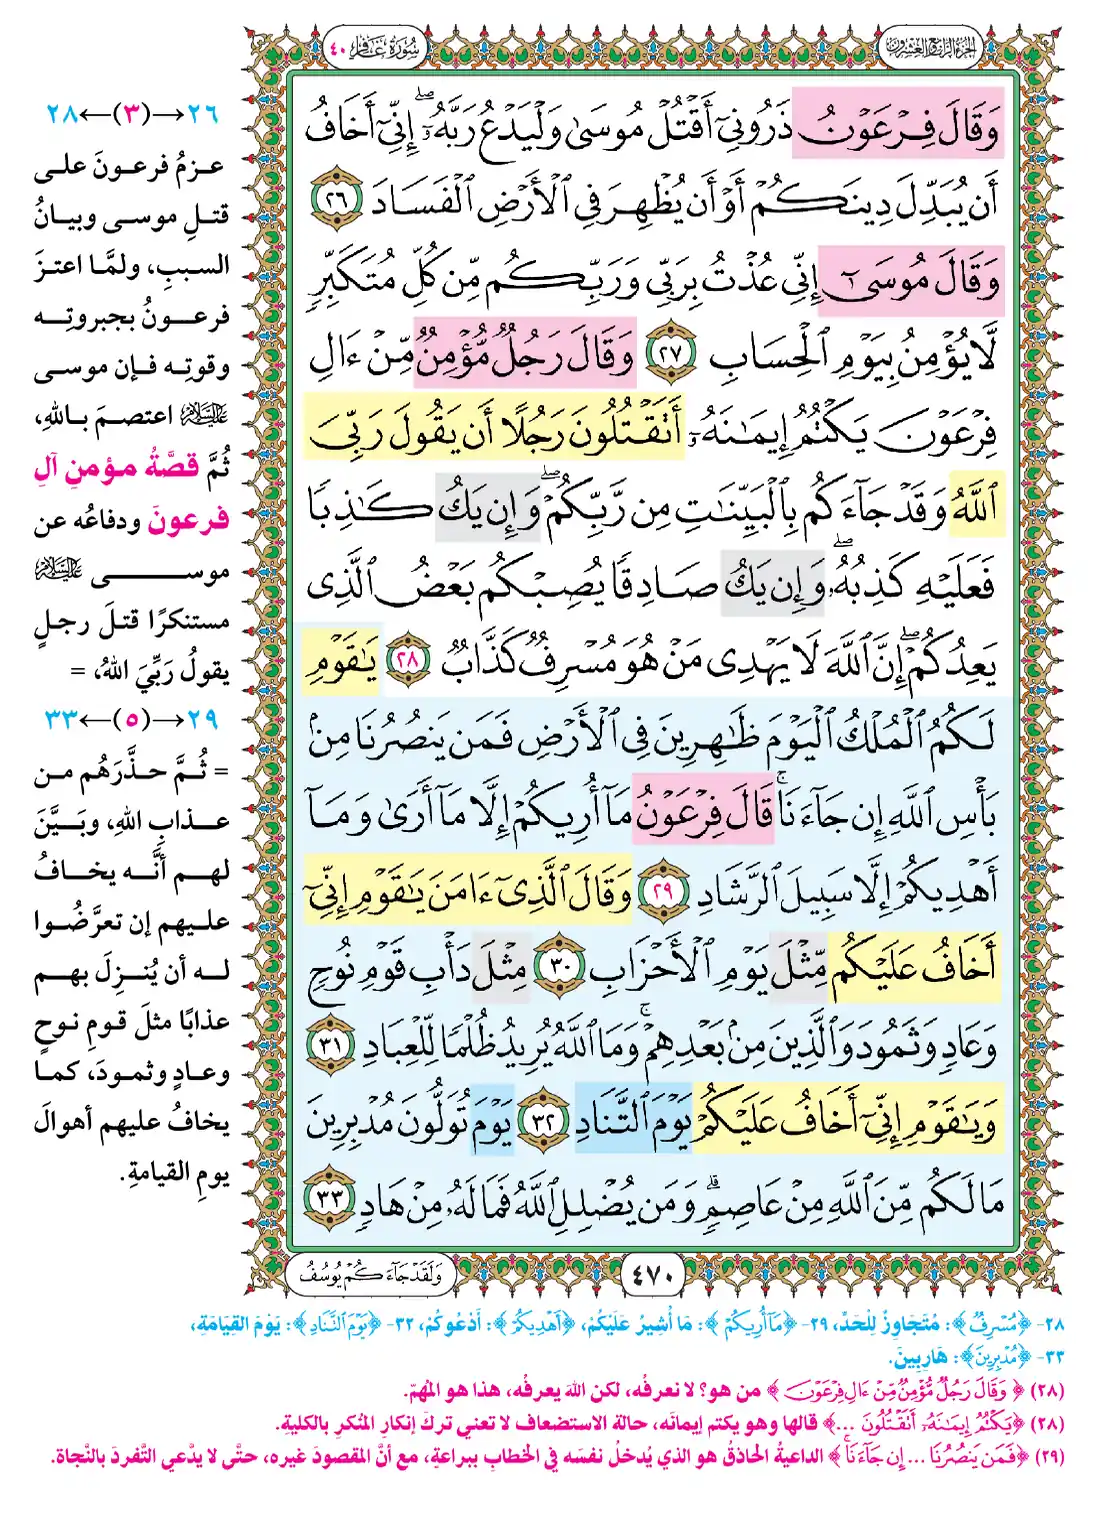 الجزء الرابع والعشرون
سُورَةُ غَافِرٍ ٤٠
وَقَالَ فِرْعَوْنُ ذَرُونِيٓ أَقْتُلْ مُوسَىٰ وَلْيَدْعُ رَبَّهُۥٓۖ إِنِّيٓ أَخَافُ
أَن يُبَدِّلَ دِينَكُمْ أَوْ أَن يُظْهِرَ فِي ٱلْأَرْضِ ٱلْفَسَادَ ٢٦
وَقَالَ مُوسَىٰٓ إِنِّي عُذْتُ بِرَبِّي وَرَبِّكُم مِّن كُلِّ مُتَكَبِّرٍ
لَّا يُؤْمِنُ بِيَوْمِ ٱلْحِسَابِ ٢٧ وَقَالَ رَجُلٌ مُّؤْمِنٌ مِّنْ ءَالِ
فِرْعَوْنَ يَكْتُمُ إِيمَٰنَهُۥٓ أَتَقْتُلُونَ رَجُلًا أَن يَقُولَ رَبِّيَ
ٱللَّهُ وَقَدْ جَآءَكُم بِٱلْبَيِّنَٰتِ مِن رَّبِّكُمْۖ وَإِن يَكُ كَٰذِبًا
فَعَلَيْهِ كَذِبُهُۥۖ وَإِن يَكُ صَادِقًا يُصِبْكُم بَعْضُ ٱلَّذِي
يَعِدُكُمْۖ إِنَّ ٱللَّهَ لَا يَهْدِي مَنْ هُوَ مُسْرِفٌ كَذَّابٌ ٢٨ يَٰقَوْمِ
لَكُمُ ٱلْمُلْكُ ٱلْيَوْمَ ظَٰهِرِينَ فِي ٱلْأَرْضِ فَمَن يَنصُرُنَا مِنۢ
بَأْسِ ٱللَّهِ إِن جَآءَنَاۚ قَالَ فِرْعَوْنُ مَآ أُرِيكُمْ إِلَّا مَآ أَرَىٰ وَمَآ
أَهْدِيكُمْ إِلَّا سَبِيلَ ٱلرَّشَادِ ٢٩ وَقَالَ ٱلَّذِيٓ ءَامَنَ يَٰقَوْمِ إِنِّيٓ
أَخَافُ عَلَيْكُم مِّثْلَ يَوْمِ ٱلْأَحْزَابِ ٣٠ مِثْلَ دَأْبِ قَوْمِ نُوحٍ
وَعَادٍ وَثَمُودَ وَٱلَّذِينَ مِنۢ بَعْدِهِمْۚ وَمَا ٱللَّهُ يُرِيدُ ظُلْمًا لِّلْعِبَادِ ٣١
وَيَٰقَوْمِ إِنِّيٓ أَخَافُ عَلَيْكُمْ يَوْمَ ٱلتَّنَادِ ٣٢ يَوْمَ تُوَلُّونَ مُدْبِرِينَ
مَا لَكُم مِّنَ ٱللَّهِ مِنْ عَاصِمٍۗ وَمَن يُضْلِلِ ٱللَّهُ فَمَا لَهُۥ مِنْ هَادٍ ٣٣
٤٧٠
وَلَقَدْ جَآءَكُمْ يُوسُفُ
٢٦→(٣)←٢٨
عزمُ فرعونَ على
قتلِ موسى وبيانُ
السببِ، ولمَّا اعتزَ
فرعونُ بجبروتِه
وقوتِه فإن موسى
عليه السلام اعتصمَ باللهِ،
ثُمَّ قصَّةُ مؤمنِ آلِ
فرعونَ ودفاعُه عن
موسى عليه السلام
مستنكرًا قتلَ رجلٍ
يقولُ رَبِّيَ اللهُ، =
٢٩→(٥)←٣٣
= ثُمَّ حذَّرَهُم من
عذابِ اللهِ، وبَيَّنَ
لهم أنَّه يخافُ
عليهم إن تعرَّضُوا
له أن يُنزِلَ بهم
عذابًا مثلَ قومِ نوحٍ
وعادٍ وثمودَ، كما
يخافُ عليهم أهوالَ
يومِ القيامةِ.
٢٨- ﴿مُسْرِفٌ﴾: مُتَجَاوِزٌ لِلْحَدِّ، ٢٩- ﴿مَآ أُرِيكُمْ﴾: مَا أُشِيرُ عَلَيْكُمْ، ﴿أَهْدِيكُمْ﴾: أَدْعُوكُمْ، ٣٢- ﴿يَوْمَ ٱلتَّنَادِ﴾: يَوْمَ القِيَامَةِ،
٣٣- ﴿مُدْبِرِينَ﴾: هَارِبِينَ.
(٢٨) ﴿وَقَالَ رَجُلٌ مُّؤْمِنٌ مِّنْ ءَالِ فِرْعَوْنَ﴾ من هو؟ لا نعرفُه، لكن اللهَ يعرفُه، هذا هو المُهمّ.
(٢٨) ﴿يَكْتُمُ إِيمَٰنَهُۥٓ أَتَقْتُلُونَ ...﴾ قالها وهو يكتم إيمانَه، حالة الاستضعاف لا تعني تركَ إنكارِ المُنكرِ بالكليةِ.
(٢٩) ﴿فَمَن يَنصُرُنَا ... إِن جَآءَنَا﴾ الداعيةُ الحاذقُ هو الذي يُدخلُ نفسَه في الخطابِ ببراعةٍ، مع أنَّ المقصودَ غيره، حتَّى لا يدَّعي التَّفردَ بالنَّجاة.